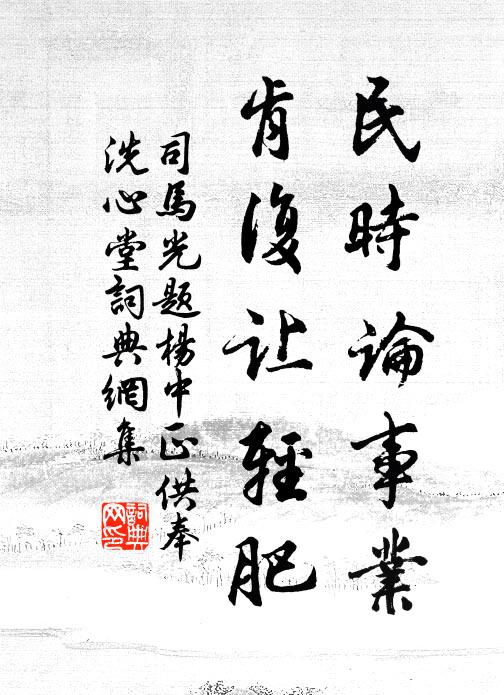 民時論事業
肯復让輕肥
司馬光题楊中正供奉
洗心堂詞典網集
詞典网印